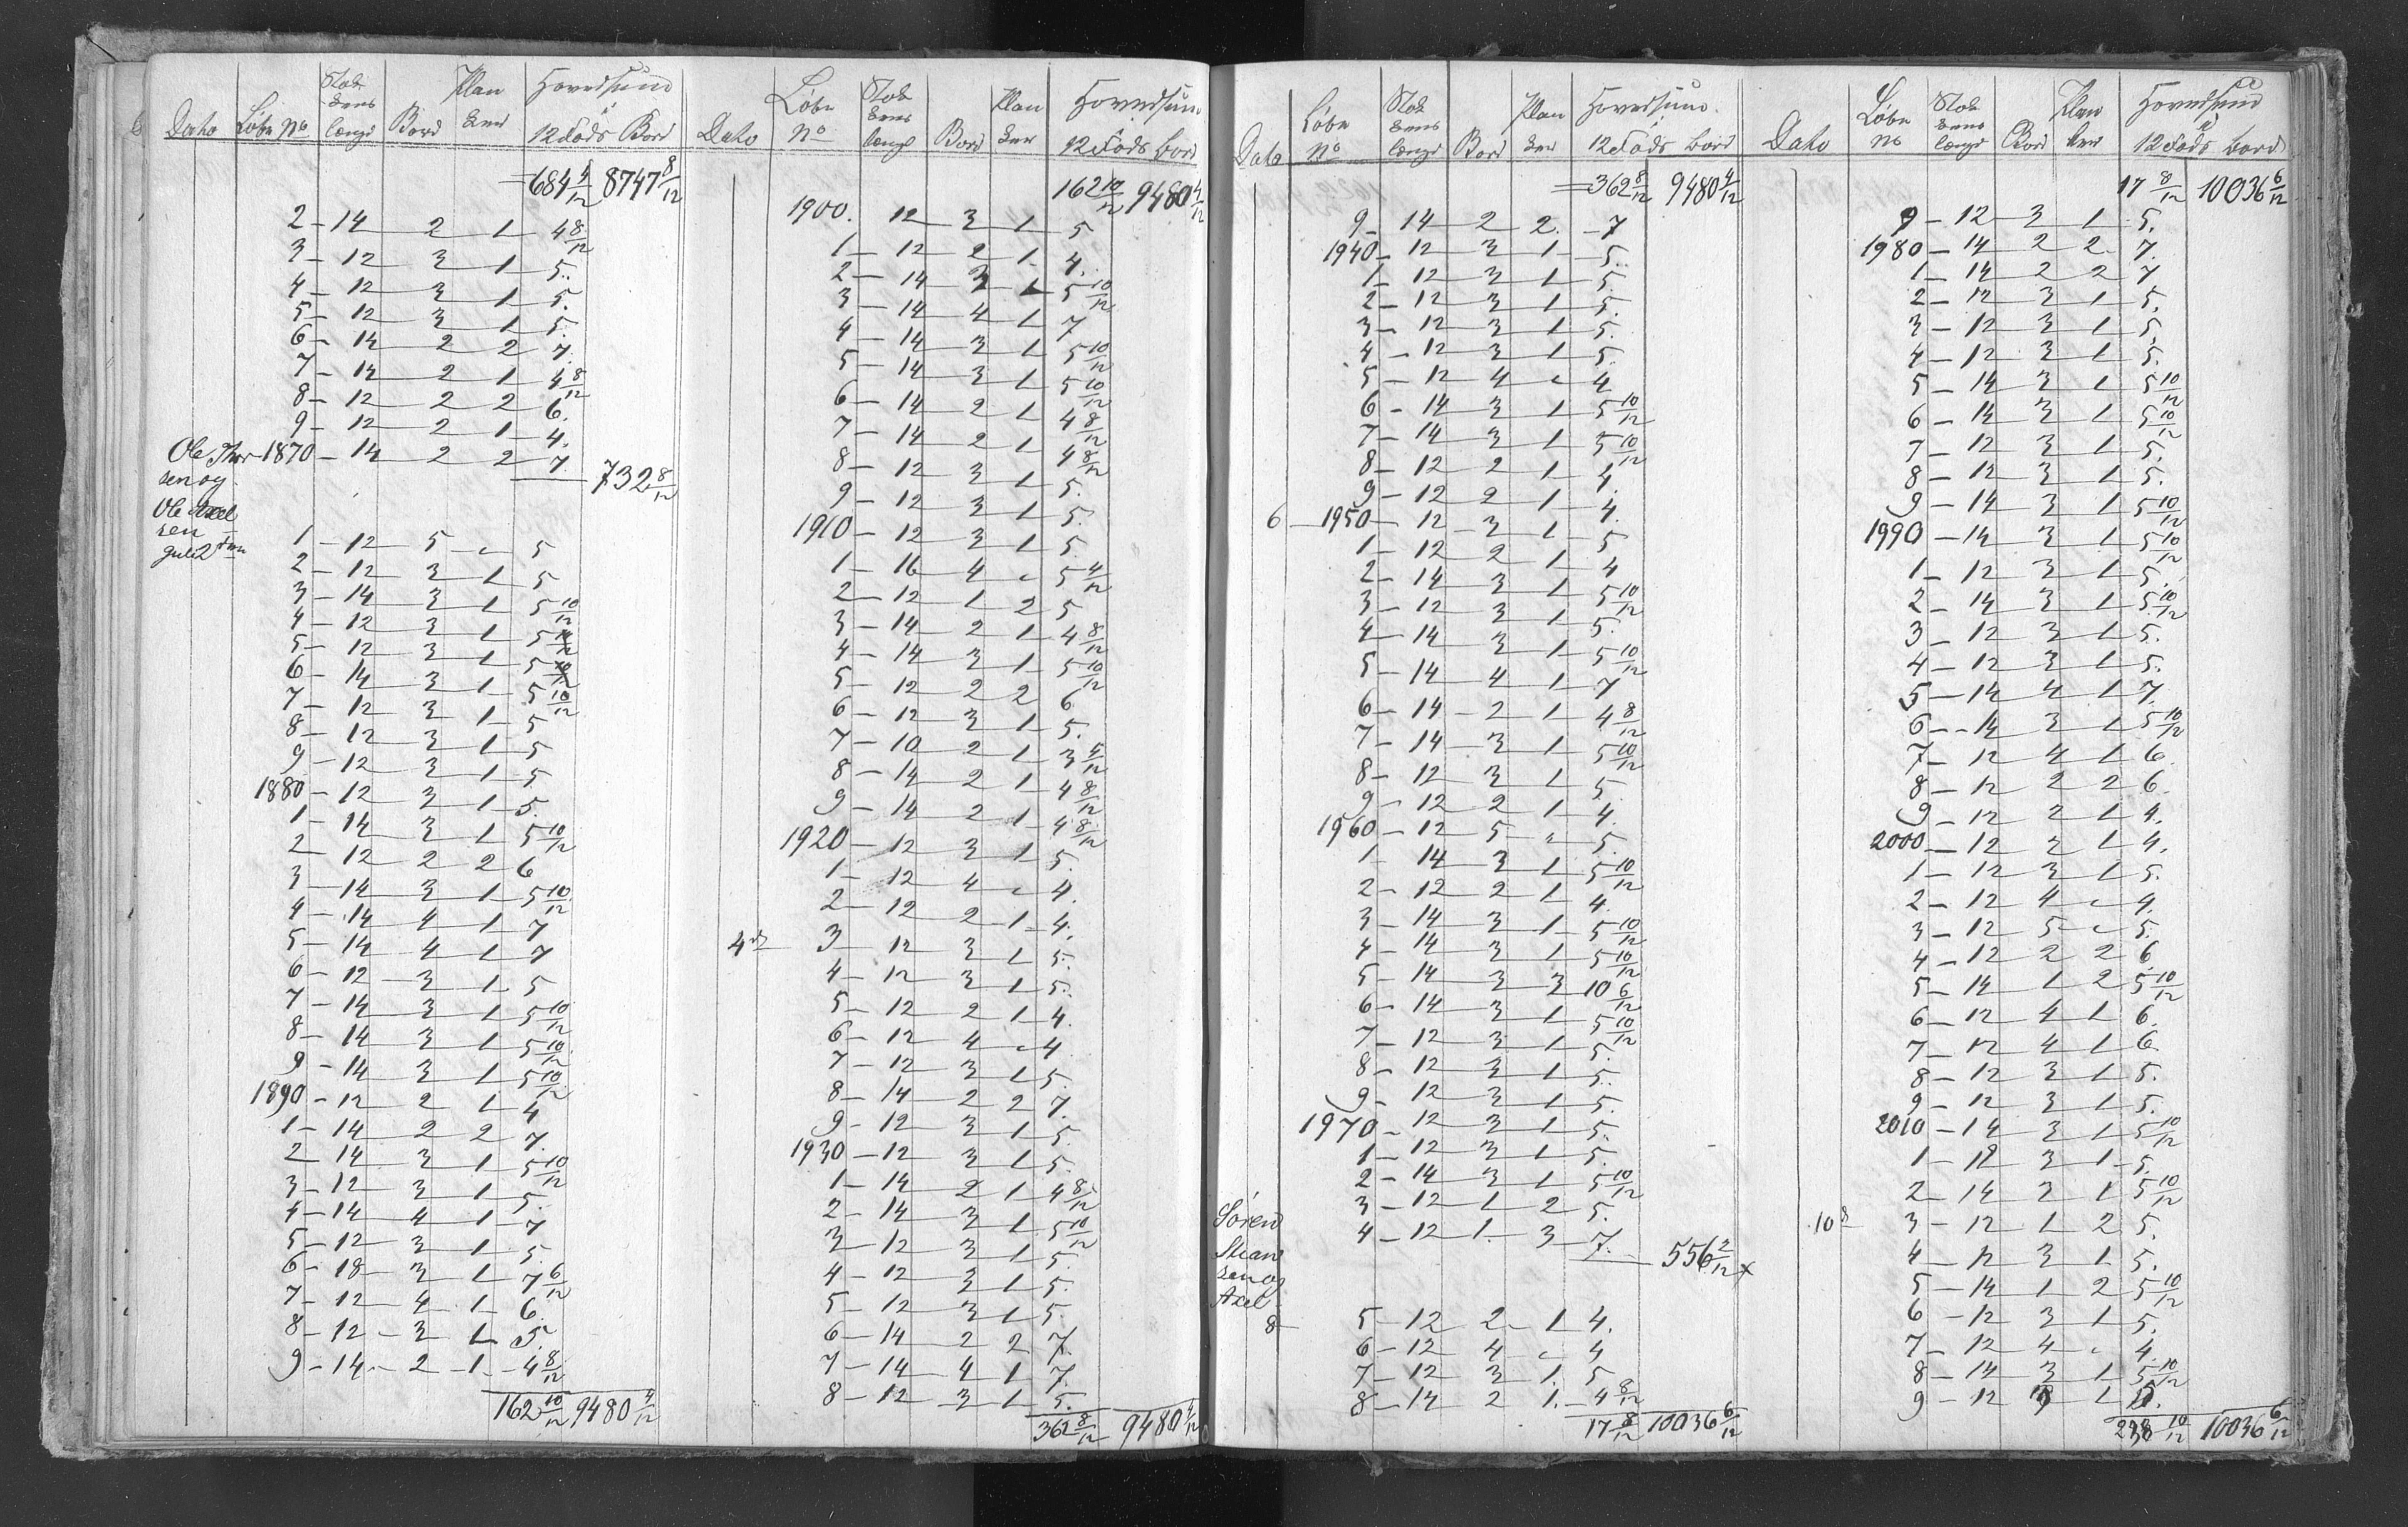 Dato Løbe No Stokkens længd Bord Planker Hovedsum á 12 Fods Bord
684 4/12 8747 8/12
2 - 14 2 1 4 8/12
3 - 12 3 1 5.
4 - 12 3 1 5.
5 - 12 3 1 5.
6 - 14 2 2 7.
7 - 14 2 1 4 8/12
8 - 12 2 2 6.
9 - 12 2 1 4.
Ole Thor 1870 - 14 2 2 7
sen og 732 8/12
Ole Axel
sen
1 - 12 5 " 5
2 - 12 3 1 5
3 - 14 3 1 5 10/12
4 - 12 3 1 5
5 - 12 3 1 5
6 - 14 3 1 5 10/12
7 - 12 3 1 5
8 - 12 3 1 5
9 - 12 3 1 5
1880 - 12 3 1 5.
1 - 14 3 1 5 10/12
2 - 12 2 2 6
3 - 14 3 1 5 10/12
4 - 14 4 1 7
5 - 14 4 1 7
6 - 12 3 1 5
7 - 14 3 1 5 10/12
8 - 14 3 1 5 10/12
9 - 14 3 1 5 10/12
1890 - 12 2 1 4
1 - 14 2 2 7.
2 - 14 3 1 5 10/12
3 - 12 3 1 5.
4 - 14 4 1 7
5 - 12 3 1 5.
6 - 18 3 1 7 6/12
7 - 12 4 1 6.
8 - 12 3 1 5.
9 - 14 2 1 4 8/12
162 10/12 9480 4/12
Dato Løbe No Stokkens længd Bord Planker Hovedsum 12 Fods Bord
162 10/12 9480 4/12
1900. 12 3 1 5
1 - 12 2 1 4.
2 - 14 3 1 5 10/12
3 - 14 4 1 7
4 - 14 3 1 5 10/12
5 - 14 3 1 5 10/12
6 - 14 2 1 4 8/12
7 - 14 2 1 4 8/12
8 - 12 3 1 5.
9 - 12 3 1 5.
1910 - 12 3 1 5.
1 - 16 4 " 5 4/12
2 - 12 1 2 5
3 - 14 2 1 4 8/12
4 - 14 3 1 5 10/12
5 - 12 2 2 6
6 - 12 3 1 5.
7 - 10 2 1 3 4/12
8 - 14 2 1 4 8/12
9 - 14 2 1 4 8/12
1920 - 12 3 1 5.
1 - 12 4 " 4.
2 - 12 2 1 4.
4de 3 12 3 1 5.
4 - 12 3 1 5.
5 - 12 2 1 4.
6 - 12 4 " 4
7 - 12 3 1 5.
8 - 14 2 2 7.
9 - 12 3 1 5.
1930 - 12 3 1 5.
1 - 14 2 1 4 8/12
2 - 14 3 1 5 10/12
3 - 12 3 1 5.
4 - 12 3 1 5.
5 - 12 3 1 5.
6 - 14 2 2 7.
7 - 14 4 1 7.
8 - 12 3 1 5.
362 8/12 9480 4/12
Dato Løbe No Stokkens længd Bord Planker Hovedsum. 12 Fods Bord
362 8/12 9480 4/12
9 - 14 2 2. 7
1940 - 12 3 1 5.
1 - 12 3 1 5.
2 - 12 3 1 5.
3 - 12 3 1 5.
4 - 12 3 1 5.
5 - 12 4 " 4
6 - 14 3 1 5 10/12
7 - 14 3 1 5 10/12
8 - 12 2 1 4.
9 - 12 2 1 4.
6 1950 - 12 3 1 5
1 - 12 2 1 4
2 - 14 3 1 5 10/12
3 - 12 3 1 5.
4 - 14 3 1 5 10/12
5 - 14 4 1 7
6 - 14 2 1 4 8/12
7 - 14 3 1 5 10/12
8 - 12 3 1 5
9 - 12 2 1 4.
1960 - 12 5 " 5.
1 - 14 3 1 5 10/12
2 - 12 2 1 4.
3 - 14 3 1 5 10/12
4 - 14 3 1 5 10/12
5 - 14 3 3 10 6/12
6 - 14 3 1 5 10/12
7 - 12 3 1 5.
8 - 12 3 1 5.
9 - 12 3 1 5.
1970 - 12 3 1 5.
1 - 12 3 1 5.
2 - 14 3 1 5 10/12
3 - 12 1 2 5.
Søren 4 - 12 1. 3 7.
Stian 556 2/12 x
sen og
Axel
8 5 - 12 2 1 4.
6 - 12 4 " 4
7 - 12 3 1. 5
8 - 14 2 1. 4 8/12
17 8/12 10036 6/12
Dato Løbe No Stokkens længd Bord Planker Hovedsum á 12 Fods Bord
17 8/12 10036 6/12
9 - 12 3 1 5.
1980 - 14 2 2 7.
1 - 14 2 2 7
2 - 12 3 1 5.
3 - 12 3 1 5.
4 - 12 3 1 5.
5 - 14 3 1 5 10/12
6 - 14 3 1 5 10/12
7 - 12 3 1 5.
8 - 12 3 1 5.
9 - 14 3 1 5 10/12
1990 - 14 3 1 5 10/12
1 - 12 3 1 5.
2 - 14 3 1 5 10/12
3 - 12 3 1 5.
4 - 12 3 1 5.
5 - 14 4 1 7.
6 - 14 3 1 5 10/12
7 - 12 4 1 6.
8 - 12 2 2 6.
9 - 12 2 1 4.
2000 - 12 2 1 4.
1 - 12 3 1 5.
2 - 12 4 " 4.
3 - 12 5 " 5.
4 - 12 2 2 6
5 - 14 1 2 5 10/12
6 - 12 4 1 6.
7 - 12 4 1 6
8 - 12 3 1 5.
9 - 12 3 1 5.
2010 - 14 3 1 5 10/12
1 - 12 3 1 5.
2 - 14 3 1 5 10/12
10 3 - 12 1 2 5.
4 - 12 3 1 5.
5 - 14 1 2 5 10/12
6 - 12 3 1 5.
7 - 12 4 " 4
8 - 14 3 1 5 10/12
9 - 12 1
10/12 10036 6/12